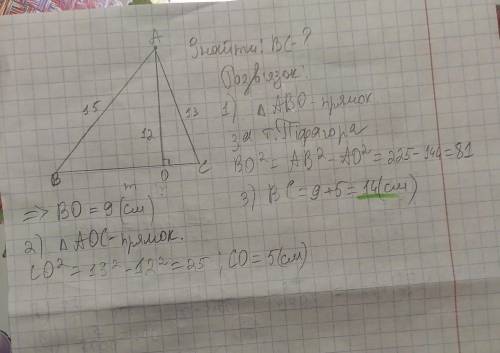 A
15
12
13
B
O
C
m
Знайти: BC-?
Розв'язок:
1) △ABO-прямок
за т. Піфагора
BO² = AB² - AO² = 225 - 144 = 81
=> BO = 9 (см)
2) △AOC-прямок.
CO² = 13² - 12² = 25 ; CO = 5 (см)
3) BC = 9 + 5 = 14 (см)